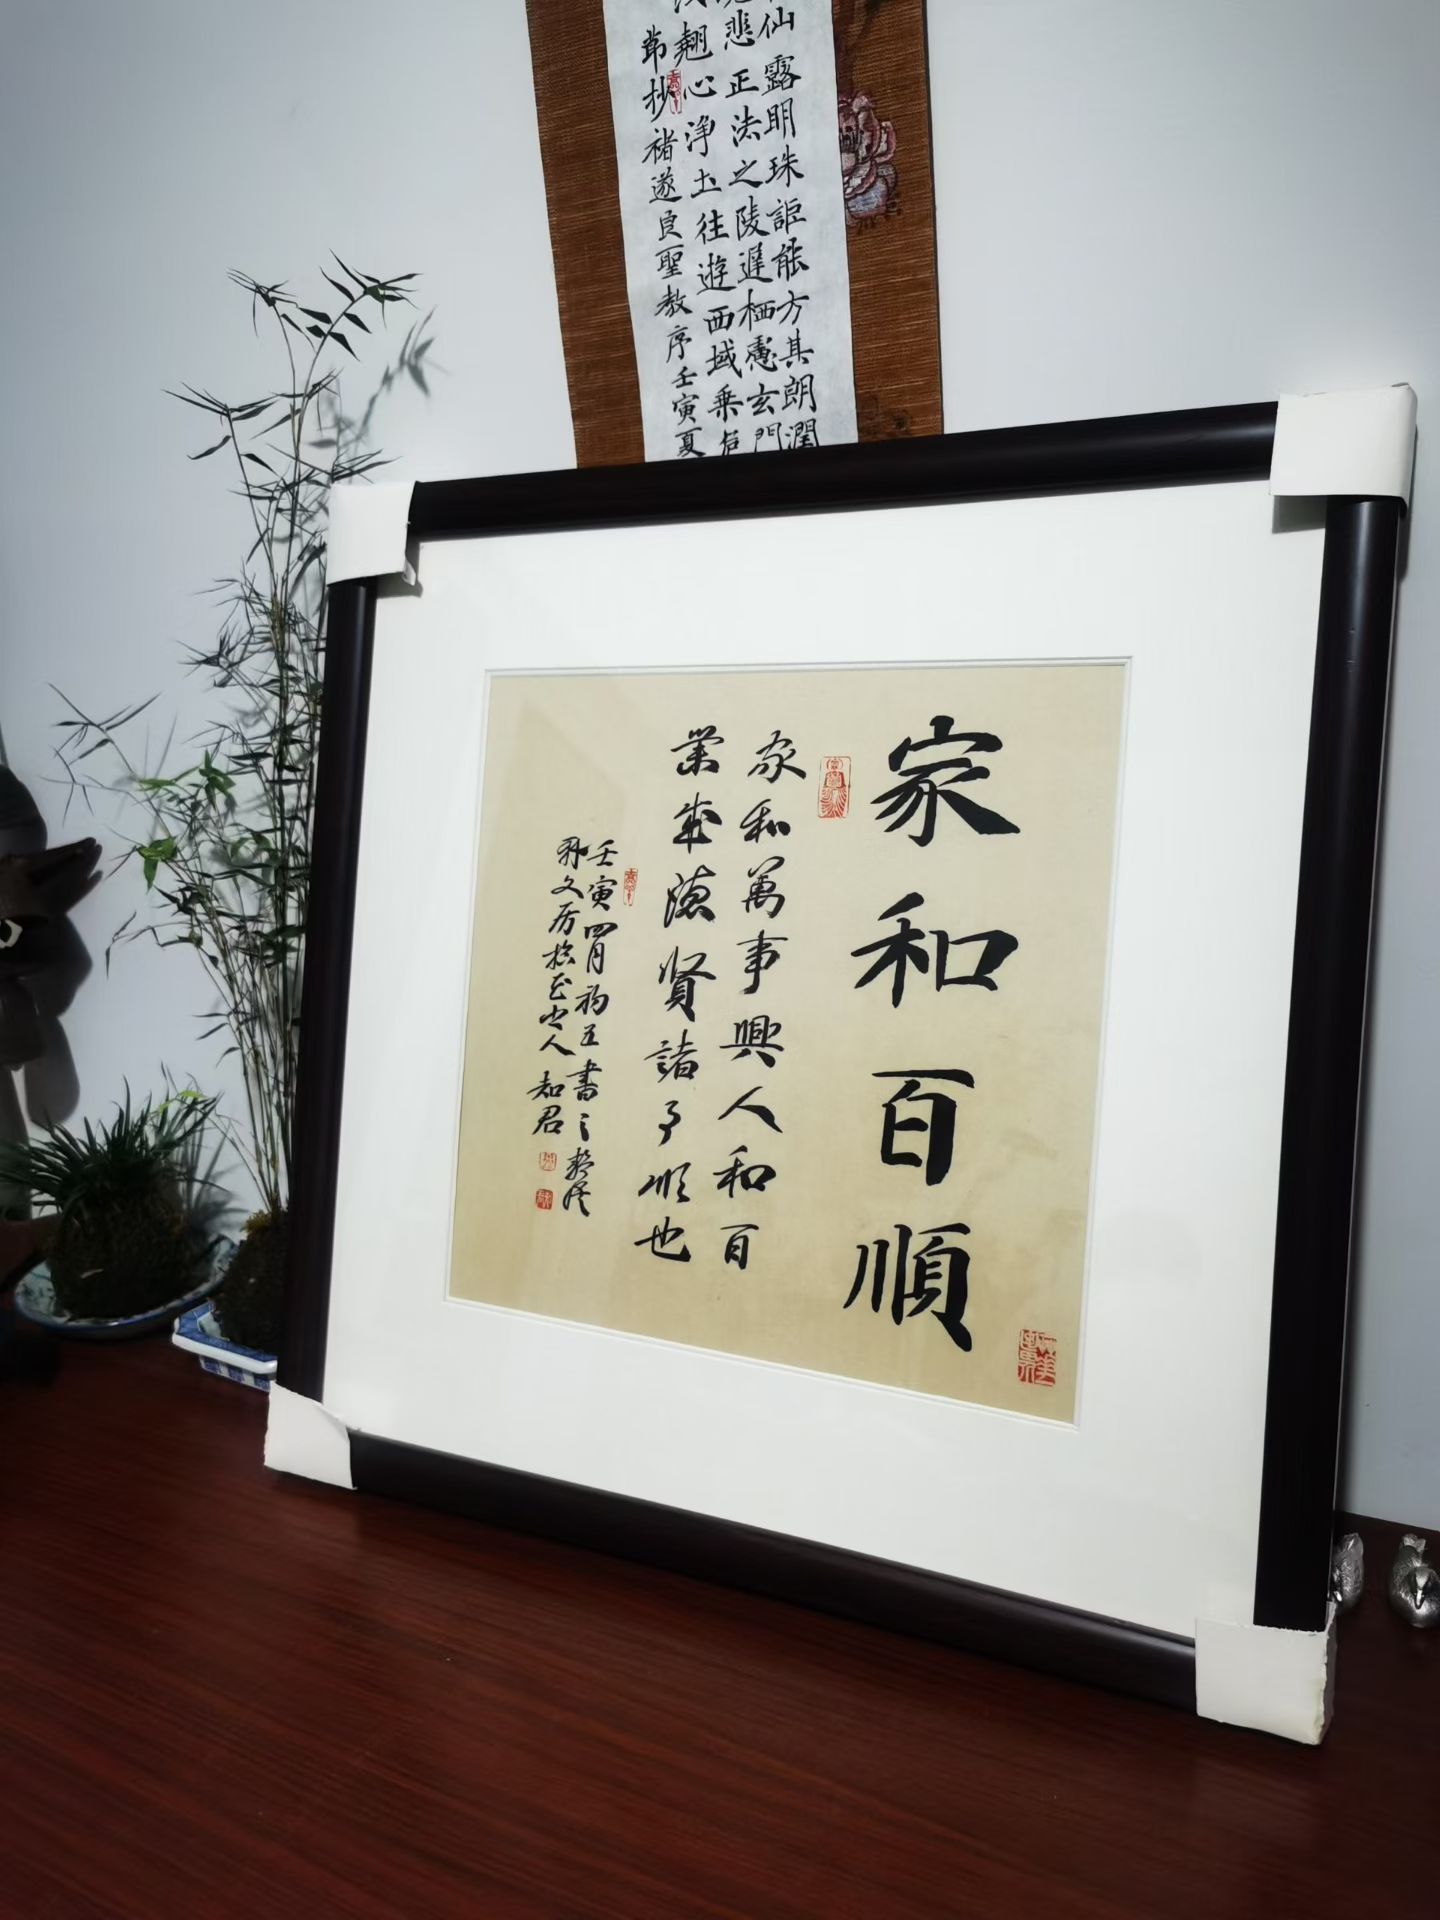 仙露明珠詎能方其朗潤
悲正法之陵遲栖慮玄門
翹心淨土往遊西域乗危
節抄褚遂良聖教序壬寅夏
家和百順
家和萬事興人和百
業成德賢諸事順也
壬寅四月初五書之
文房
人知君